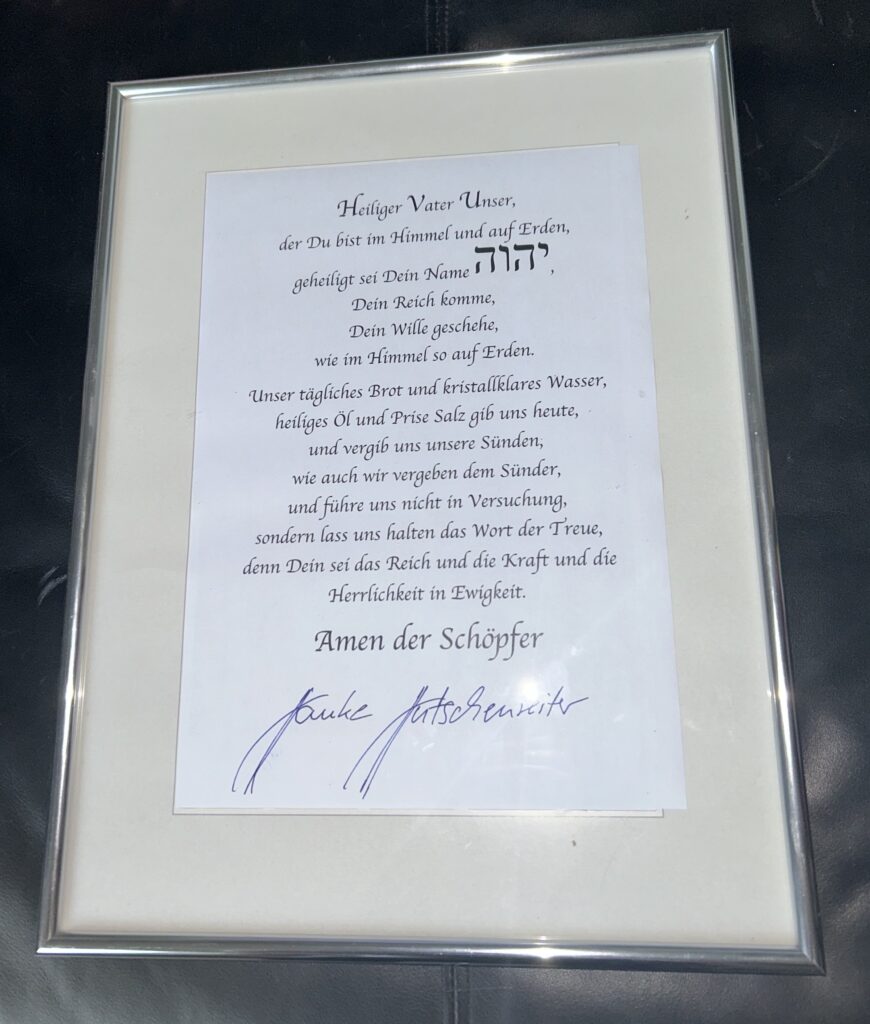 Heiliger Vater Unser,
der Du bist im Himmel und auf Erden,
geheiligt sei Dein Name יהוה,
Dein Reich komme,
Dein Wille geschehe,
wie im Himmel so auf Erden.
Unser tägliches Brot und kristallklares Wasser,
heiliges Öl und Prise Salz gib uns heute,
und vergib uns unsere Sünden,
wie auch wir vergeben dem Sünder,
und führe uns nicht in Versuchung,
sondern lass uns halten das Wort der Treue,
denn Dein sei das Reich und die Kraft und die
Herrlichkeit in Ewigkeit.
Amen der Schöpfer